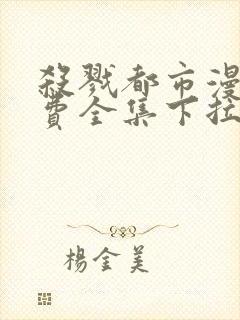 殺戮都市漫
費全集下拉
楊金美